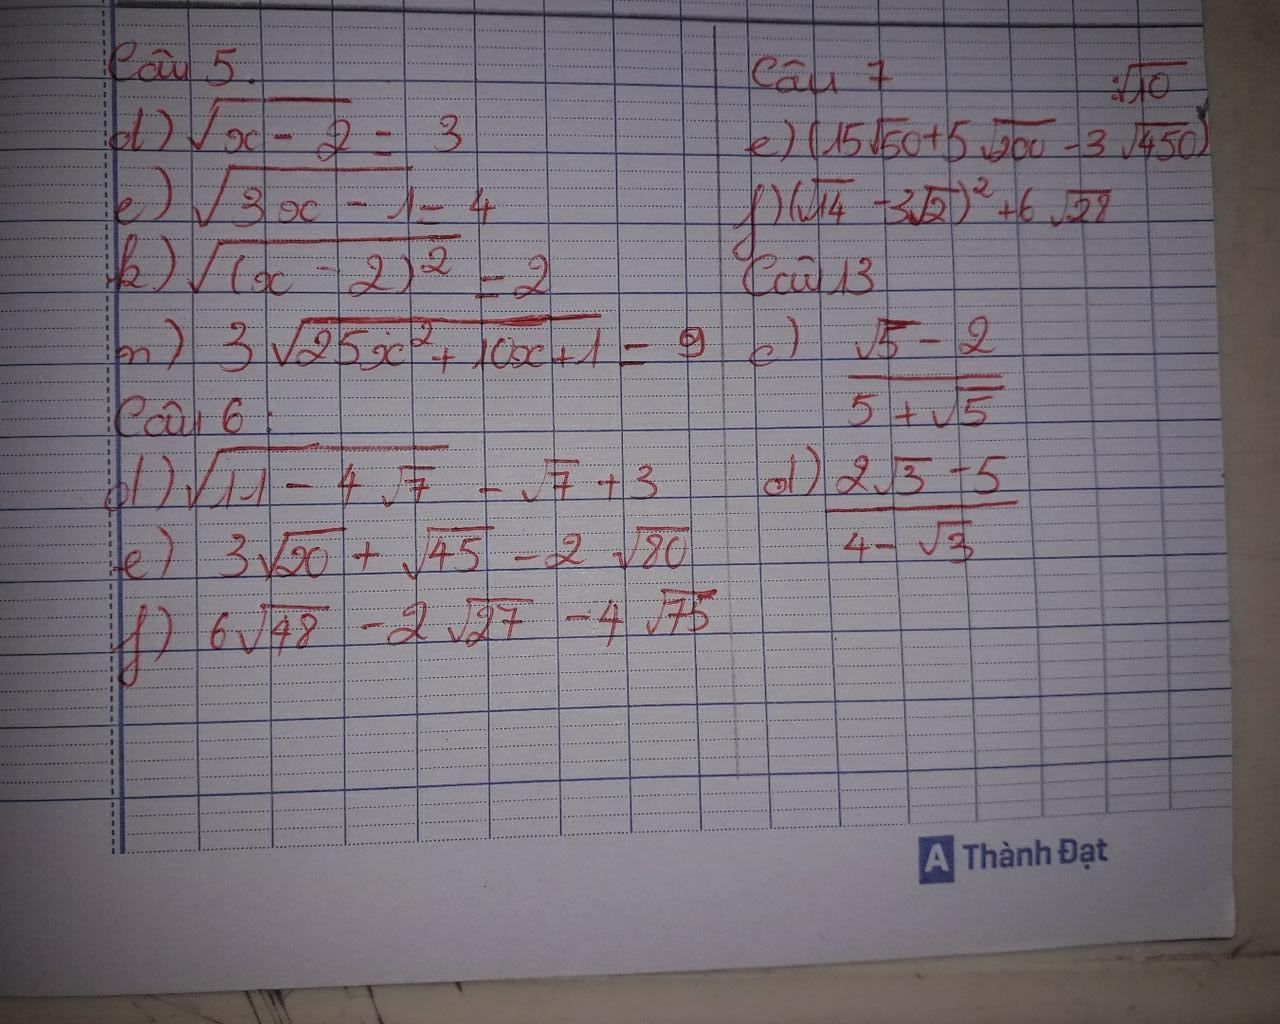 Câu 5.
d) √(x - 2) = 3
e) √(3x - 1) = 4
k) √((x - 2)²) = 2
m) 3√(25x² + 10x + 1) = 9
Câu 6:
d) √(11 - 4√7) - √7 + 3
e) 3√20 + √45 - 2√80
f) 6√48 - 2√27 - 4√75
Câu 7
e) (15√50 + 5√200 - 3√450) :√10
f) (√14 - 3√2)² + 6√28
Câu 13
c) (√5 - 2)/(5 + √5)
d) (2√3 - 5)/(4 - √3)
A Thành Đạt